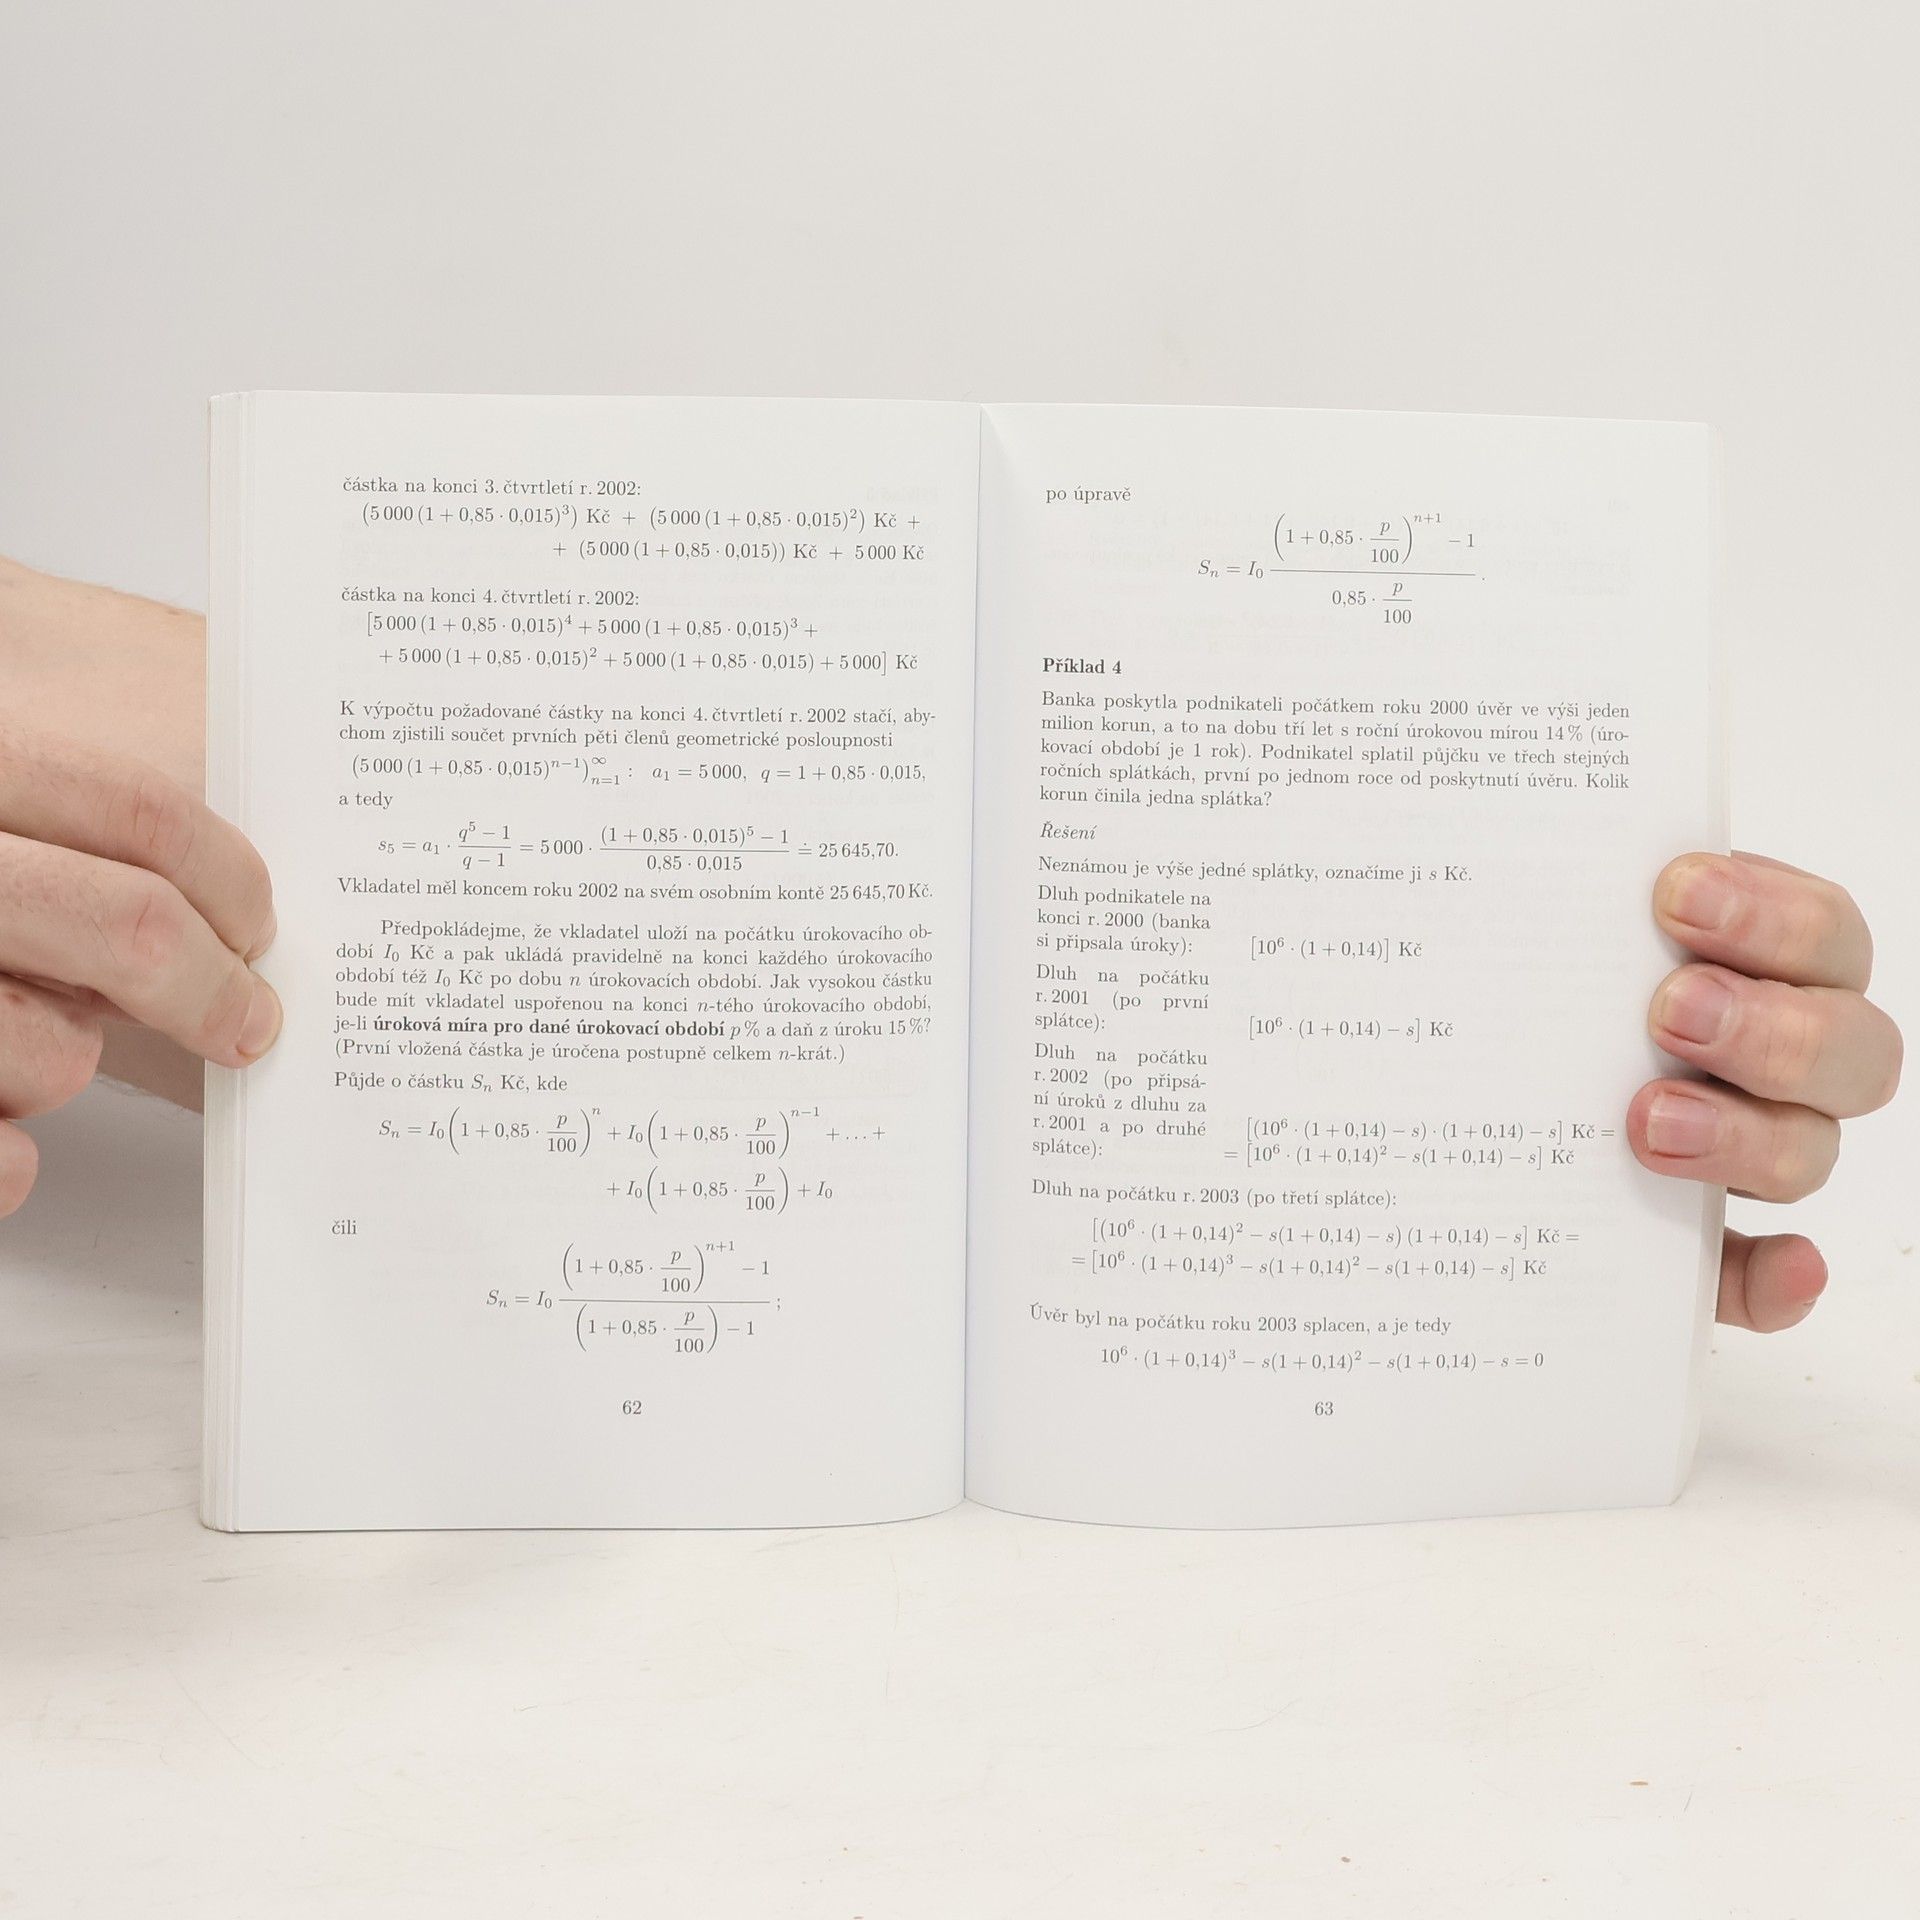 částka na konci 3. čtvrtletí r. 2002:
(5 000 (1 + 0,85 · 0,015)³) Kč + (5 000 (1 + 0,85 · 0,015)²) Kč +
+ (5 000 (1 + 0,85 · 0,015)) Kč + 5 000 Kč
částka na konci 4. čtvrtletí r. 2002:
[5 000 (1 + 0,85 · 0,015)⁴ + 5 000 (1 + 0,85 · 0,015)³ +
+ 5 000 (1 + 0,85 · 0,015)² + 5 000 (1 + 0,85 · 0,015) + 5 000] Kč
K výpočtu požadované částky na konci 4. čtvrtletí r. 2002 stačí, aby-
chom zjistili součet prvních pěti členů geometrické posloupnosti
(5 000 (1 + 0,85 · 0,015)ⁿ⁻¹)_{n=1}^{∞} : a₁ = 5 000, q = 1 + 0,85 · 0,015,
a tedy
s₅ = a₁ · \frac{q⁵ − 1}{q − 1} = 5 000 · \frac{(1 + 0,85 · 0,015)⁵ − 1}{0,85 · 0,015} ≐ 25 645,70.
Vkladatel měl koncem roku 2002 na svém osobním kontě 25 645,70 Kč.
Předpokládejme, že vkladatel uloží na počátku úrokovacího ob-
dobí I₀ Kč a pak ukládá pravidelně na konci každého úrokovacího
období též I₀ Kč po dobu n úrokovacích období. Jak vysokou částku
bude mít vkladatel uspořenou na konci n-tého úrokovacího období,
je-li úroková míra pro dané úrokovací období p % a daň z úroku 15 %?
(První vložená částka je úročena postupně celkem n-krát.)
Půjde o částku Sₙ Kč, kde
Sₙ = I₀(1 + 0,85 · \frac{p}{100})ⁿ + I₀(1 + 0,85 · \frac{p}{100})ⁿ⁻¹ + … +
+ I₀(1 + 0,85 · \frac{p}{100}) + I₀
čili
Sₙ = I₀ \frac{(1 + 0,85 · \frac{p}{100})ⁿ⁺¹ − 1}{(1 + 0,85 · \frac{p}{100}) − 1} ;
62
po úpravě
Sₙ = I₀ \frac{(1 + 0,85 · \frac{p}{100})ⁿ⁺¹ − 1}{0,85 · \frac{p}{100}} .
Příklad 4
Banka poskytla podnikateli počátkem roku 2000 úvěr ve výši jeden
milion korun, a to na dobu tří let s roční úrokovou mírou 14 % (úro-
kovací období je 1 rok). Podnikatel splatil půjčku ve třech stejných
ročních splátkách, první po jednom roce od poskytnutí úvěru. Kolik
korun činila jedna splátka?
Řešení
Neznámou je výše jedné splátky, označíme ji s Kč.
Dluh podnikatele na
konci r. 2000 (banka
si připsala úroky): [10⁶ · (1 + 0,14)] Kč
Dluh na počátku
r. 2001 (po první
splátce): [10⁶ · (1 + 0,14) − s] Kč
Dluh na počátku
r. 2002 (po připsá-
ní úroků z dluhu za
r. 2001 a po druhé [(10⁶ · (1 + 0,14) − s) · (1 + 0,14) − s] Kč =
splátce): = [10⁶ · (1 + 0,14)² − s(1 + 0,14) − s] Kč
Dluh na počátku r. 2003 (po třetí splátce):
[(10⁶ · (1 + 0,14)² − s(1 + 0,14) − s) (1 + 0,14) − s] Kč =
= [10⁶ · (1 + 0,14)³ − s(1 + 0,14)² − s(1 + 0,14) − s] Kč
Úvěr byl na počátku roku 2003 splacen, a je tedy
10⁶ · (1 + 0,14)³ − s(1 + 0,14)² − s(1 + 0,14) − s = 0
63